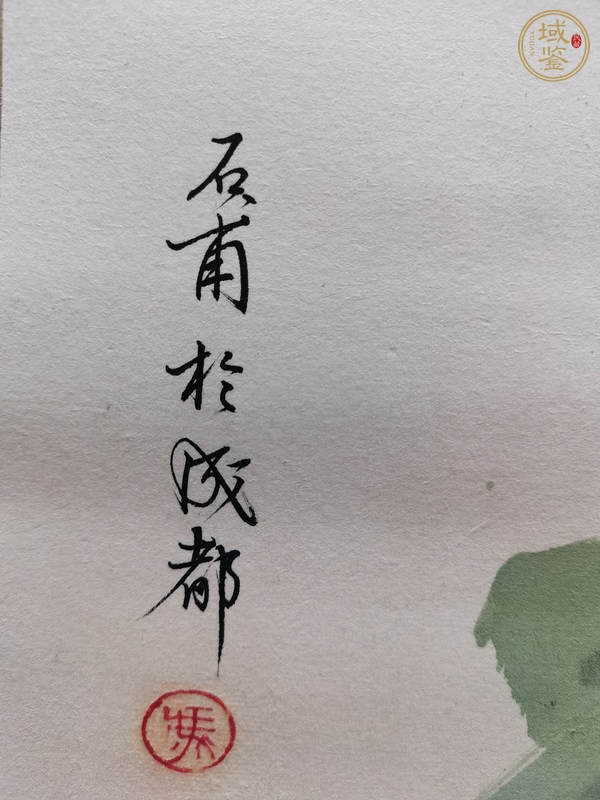 石甫於成都
域鉴
YUJIAN